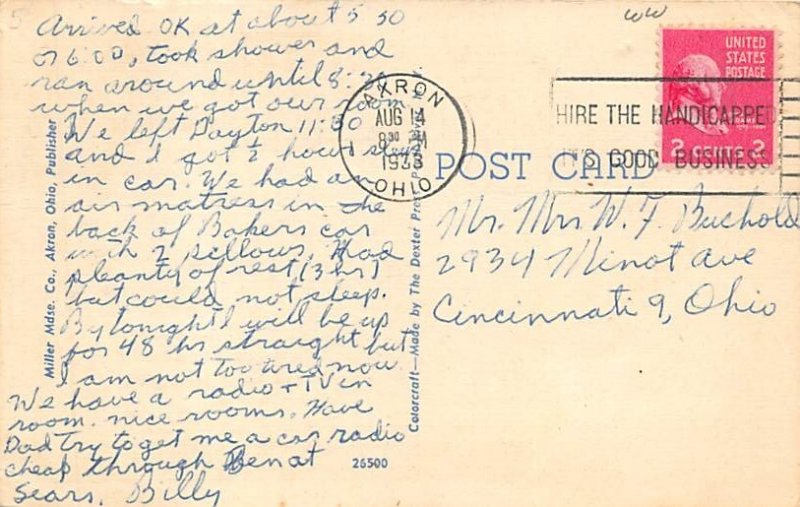 Arrived OK at about 5 50
or 6:00, took shower and
ran around until 8:30
when we got our room
We left Dayton 11:30
and I got ½ hours sleep
in car. We had an
air matress in the
back of Bakers car
with 2 pellows. Had
pleanty of rest (3 hrs)
but could not sleep.
By tonight I will be up
for 48 hrs straight but
I am not too tired now.
We have a radio + TV in
room. nice rooms. Have
Dad try to get me a car radio
cheap through Ben at
Sears. Billy
Miller Mdse. Co., Akron, Ohio, Publisher
Colorcraft—Made by The Dexter Press,
26500
WW
AKRON
AUG 14
8 30 PM
OHIO
HIRE THE HANDICAPPED
IT'S GOOD BUSINESS
UNITED
STATES
POSTAGE
2 CENTS 2
POST CARD
Mr. Mrs W. F. Buchold
2934 Minot Ave
Cincinnati 9, Ohio